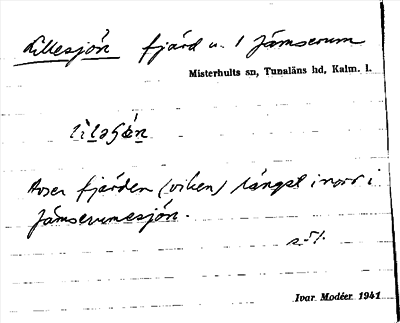 Lillesjön fjärd u. 1 Jämserum
Misterhults sn, Tunaläns hd, Kalm. l.
fjärden (viken) längst i norr i
Jämserumesjön.
Ivar Modéer 1941